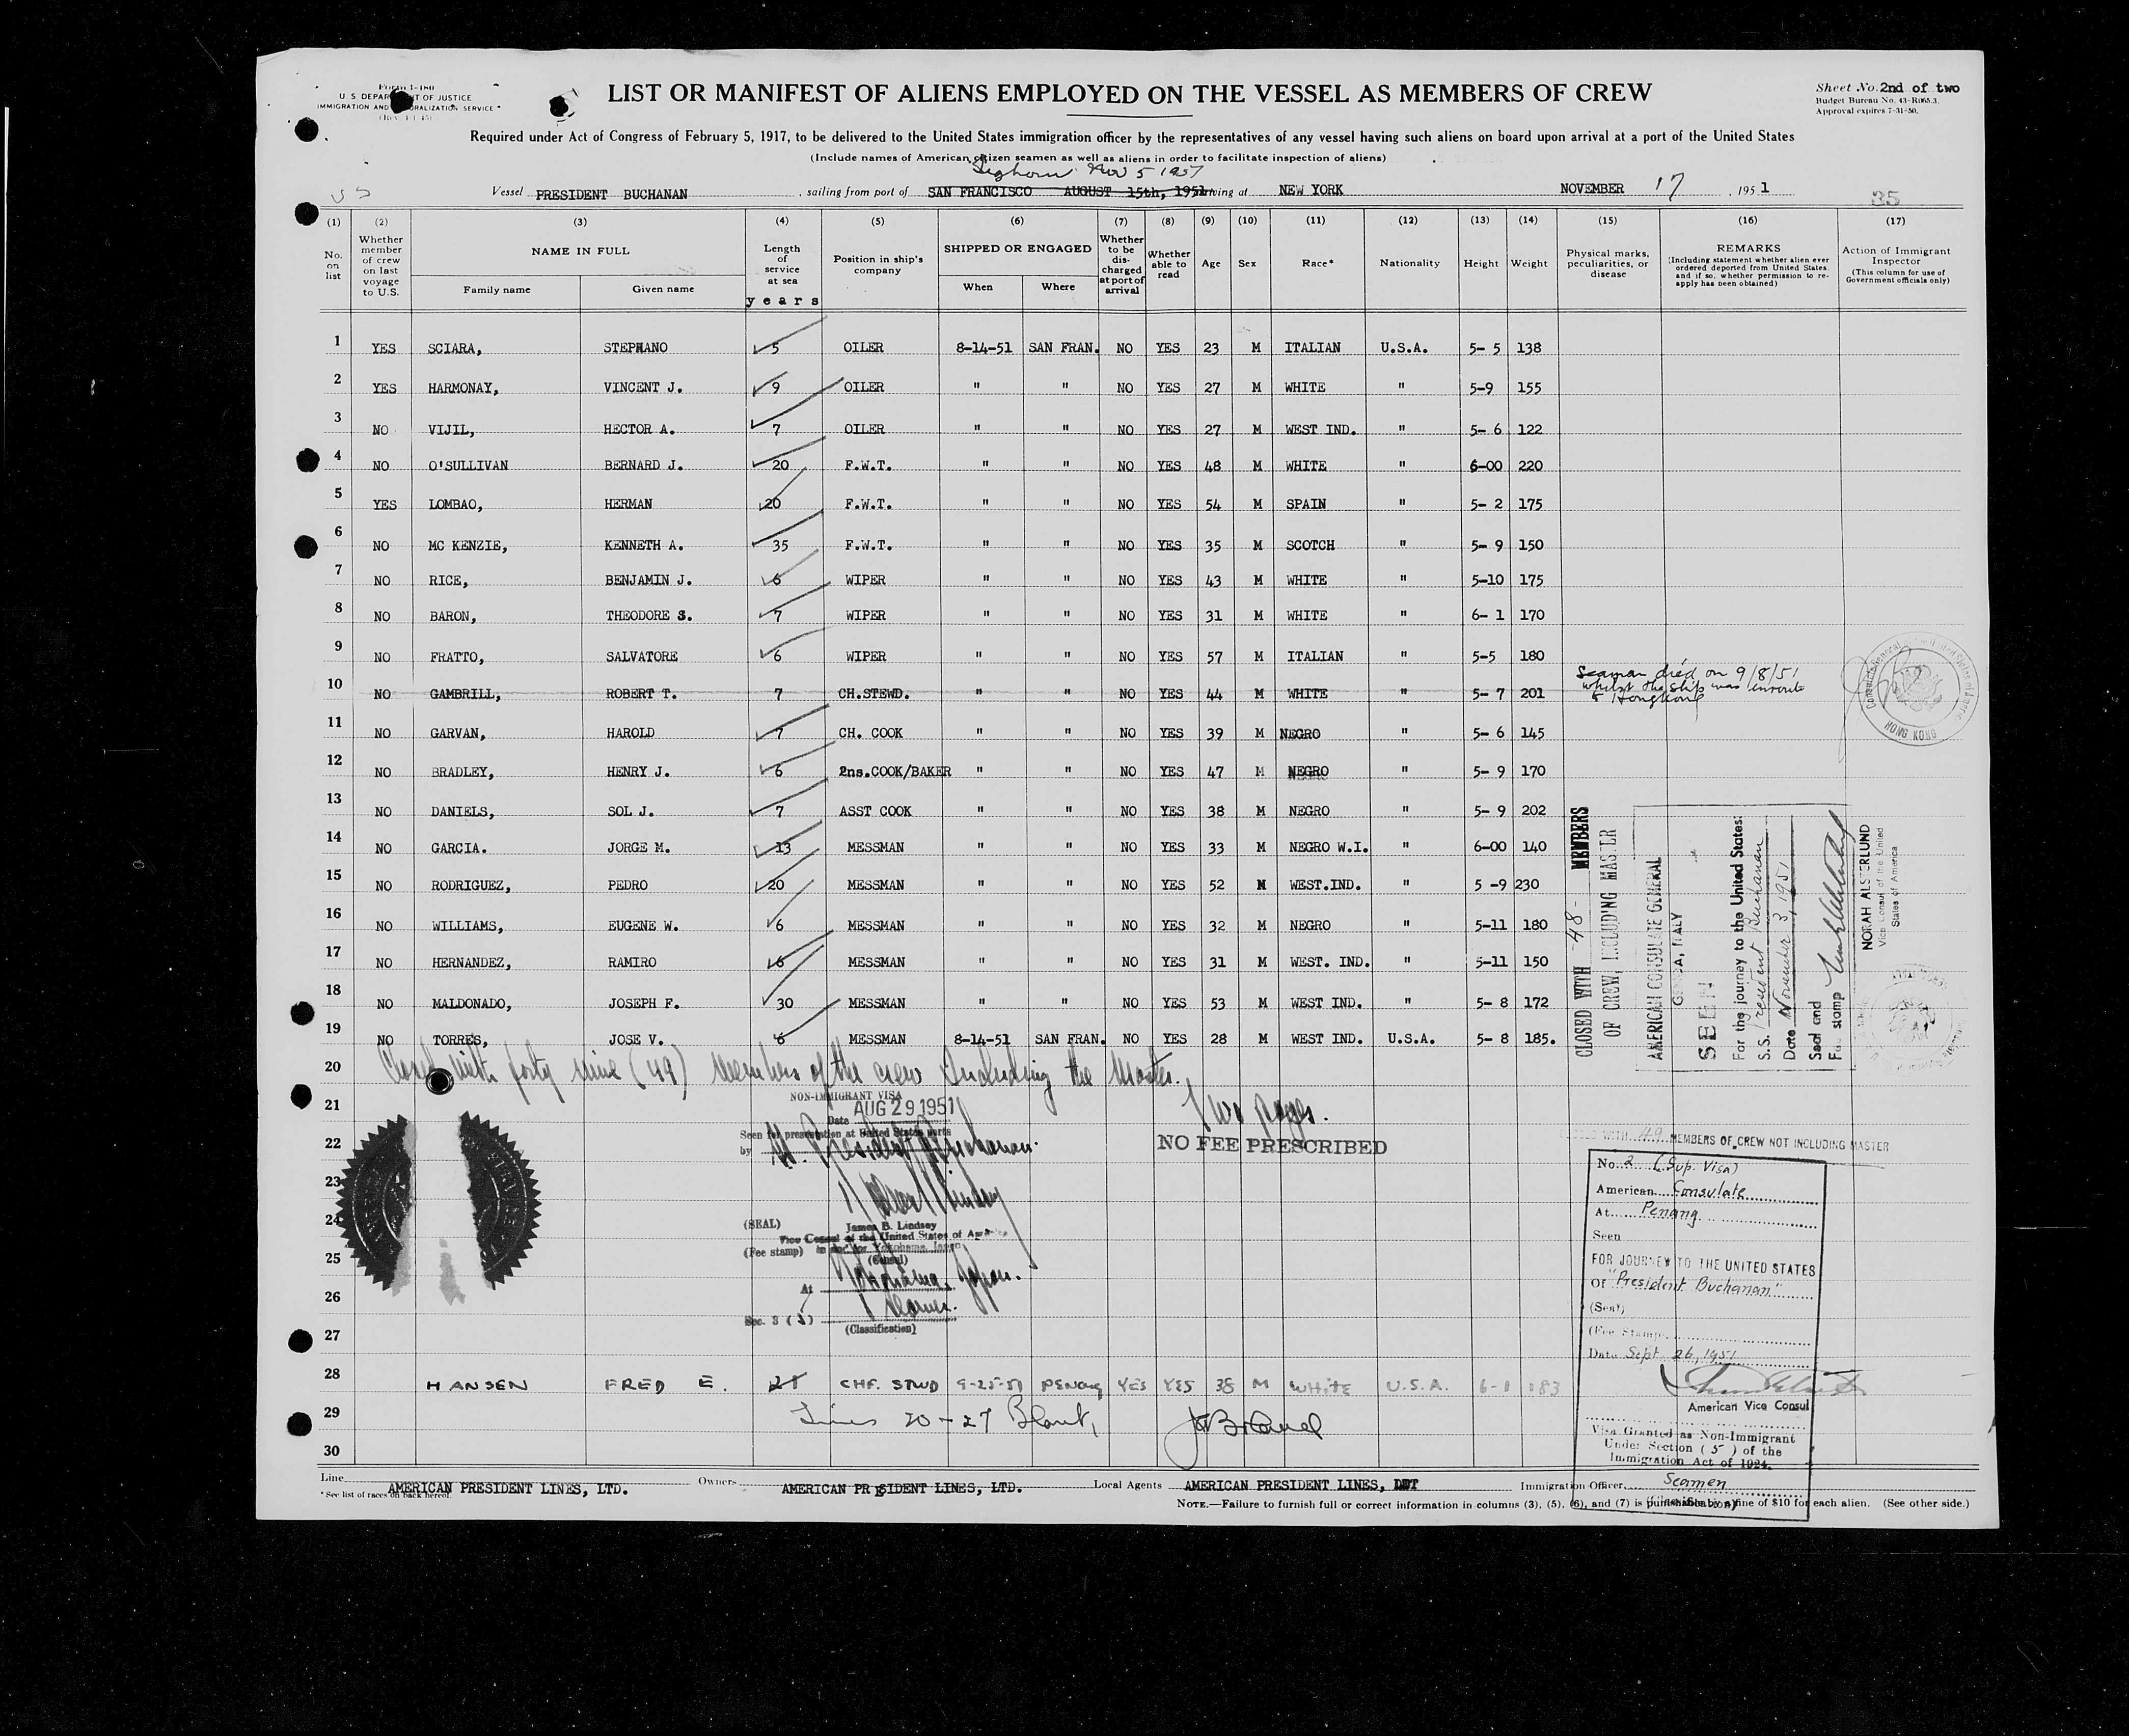 Form I-480
U. S. DEPARTMENT OF JUSTICE
IMMIGRATION AND NATURALIZATION SERVICE
LIST OR MANIFEST OF ALIENS EMPLOYED ON THE VESSEL AS MEMBERS OF CREW
Sheet No. 2nd of two
Budget Bureau No. 43-R065.3.
Approval expires 7-31-50.
Required under Act of Congress of February 5, 1917, to be delivered to the United States immigration officer by the representatives of any vessel having such aliens on board upon arrival at a port of the United States
(Include names of American citizen seamen as well as aliens in order to facilitate inspection of aliens)
Leghorn Nov 5 1951
Vessel PRESIDENT BUCHANAN, sailing from port of SAN FRANCISCO AUGUST 15th, 1951 arriving at NEW YORK NOVEMBER 17, 1951
35
(1) (2) (3) (4) (5) (6) (7) (8) (9) (10) (11) (12) (13) (14) (15) (16) (17)
No. on list
Whether member of crew on last voyage to U.S.
NAME IN FULL
Family name
Given name
Length of service at sea
years
Position in ship's company
SHIPPED OR ENGAGED
When
Where
Whether to be discharged at port of arrival
Whether able to read
Age
Sex
Race*
Nationality
Height
Weight
Physical marks, peculiarities, or disease
REMARKS
(Including statement whether alien ever ordered deported from United States, and if so, whether permission to reapply has been obtained)
Action of Immigrant Inspector
(This column for use of Government officials only)
1 YES SCIARA, STEPHANO 5 OILER 8-14-51 SAN FRAN. NO YES 23 M ITALIAN U.S.A. 5- 5 138
2 YES HARMONAY, VINCENT J. 9 OILER " " NO YES 27 M WHITE " 5-9 155
3 NO VIJIL, HECTOR A. 7 OILER " " NO YES 27 M WEST IND. " 5- 6 122
4 NO O'SULLIVAN BERNARD J. 20 F.W.T. " " NO YES 48 M WHITE " 6-00 220
5 YES LOMBAO, HERMAN 20 F.W.T. " " NO YES 54 M SPAIN " 5- 2 175
6 NO MC KENZIE, KENNETH A. 35 F.W.T. " " NO YES 35 M SCOTCH " 5- 9 150
7 NO RICE, BENJAMIN J. 6 WIPER " " NO YES 43 M WHITE " 5-10 175
8 NO BARON, THEODORE S. 7 WIPER " " NO YES 31 M WHITE " 6- 1 170
9 NO FRATTO, SALVATORE 6 WIPER " " NO YES 57 M ITALIAN " 5-5 180
10 NO GAMBRILL, ROBERT T. 7 CH.STEWD. " " NO YES 44 M WHITE " 5- 7 201
Seaman died on 9/8/51
whilst the ship was enroute
to Hongkong
HONG KONG
11 NO GARVAN, HAROLD 7 CH. COOK " " NO YES 39 M NEGRO " 5- 6 145
12 NO BRADLEY, HENRY J. 6 2ns.COOK/BAKER " " NO YES 47 M NEGRO " 5- 9 170
13 NO DANIELS, SOL J. 7 ASST COOK " " NO YES 38 M NEGRO " 5- 9 202
14 NO GARCIA. JORGE M. 13 MESSMAN " " NO YES 33 M NEGRO W.I. " 6-00 140
15 NO RODRIGUEZ, PEDRO 20 MESSMAN " " NO YES 52 M WEST.IND. " 5 -9 230
16 NO WILLIAMS, EUGENE W. 6 MESSMAN " " NO YES 32 M NEGRO " 5-11 180
17 NO HERNANDEZ, RAMIRO 6 MESSMAN " " NO YES 31 M WEST. IND. " 5-11 150
18 NO MALDONADO, JOSEPH F. 30 MESSMAN " " NO YES 53 M WEST IND. " 5- 8 172
19 NO TORRES, JOSE V. 6 MESSMAN 8-14-51 SAN FRAN. NO YES 28 M WEST IND. U.S.A. 5- 8 185.
CLOSED WITH -48- MEMBERS
OF CREW, INCLUDING MASTER
AMERICAN CONSULATE GENERAL
GENOA, ITALY
SEEN
For the journey to the United States:
S.S. President Buchanan
Date November 3, 1951
Seal and
Fee stamp
NORAH ALSTERLUND
Vice Consul of the United
States of America
20 Closed with forty nine (49) members of the crew Including the Master.
21 Two pages.
NON-IMMIGRANT VISA
Date AUG 29 1951
22 Seen for presentation at United States ports
by President Buchanan
NO FEE PRESCRIBED
23
24 (SEAL) James B. Lindsey
Vice Consul of the United States of America
(Fee stamp)
25 (Consul)
At Yokohama, Japan.
26
Sec. 3 (5)
(Classification)
27
CLOSED WITH 49 MEMBERS OF CREW NOT INCLUDING MASTER
No. 2 (Sup. Visa)
American Consulate
At Penang
Seen
FOR JOURNEY TO THE UNITED STATES
Of "President Buchanan"
(Seal)
(Fee Stamp
Date Sept 26, 1951
American Vice Consul
Visa Granted as Non-Immigrant
Under Section (5) of the
Immigration Act of 1924.
Seamen
(Classification)
28 HANSEN FRED E. CHF. STWD 9-25-51 PENANG YES YES 38 M WHITE U.S.A. 6-1 183
29 Lines 20-27 Blank,
30
Line AMERICAN PRESIDENT LINES, LTD. Owners AMERICAN PRESIDENT LINES, LTD. Local Agents AMERICAN PRESIDENT LINES, Immigration Officer
* See list of races on back hereof.
NOTE.—Failure to furnish full or correct information in columns (3), (5), (6), and (7) is punishable by a fine of $10 for each alien. (See other side.)